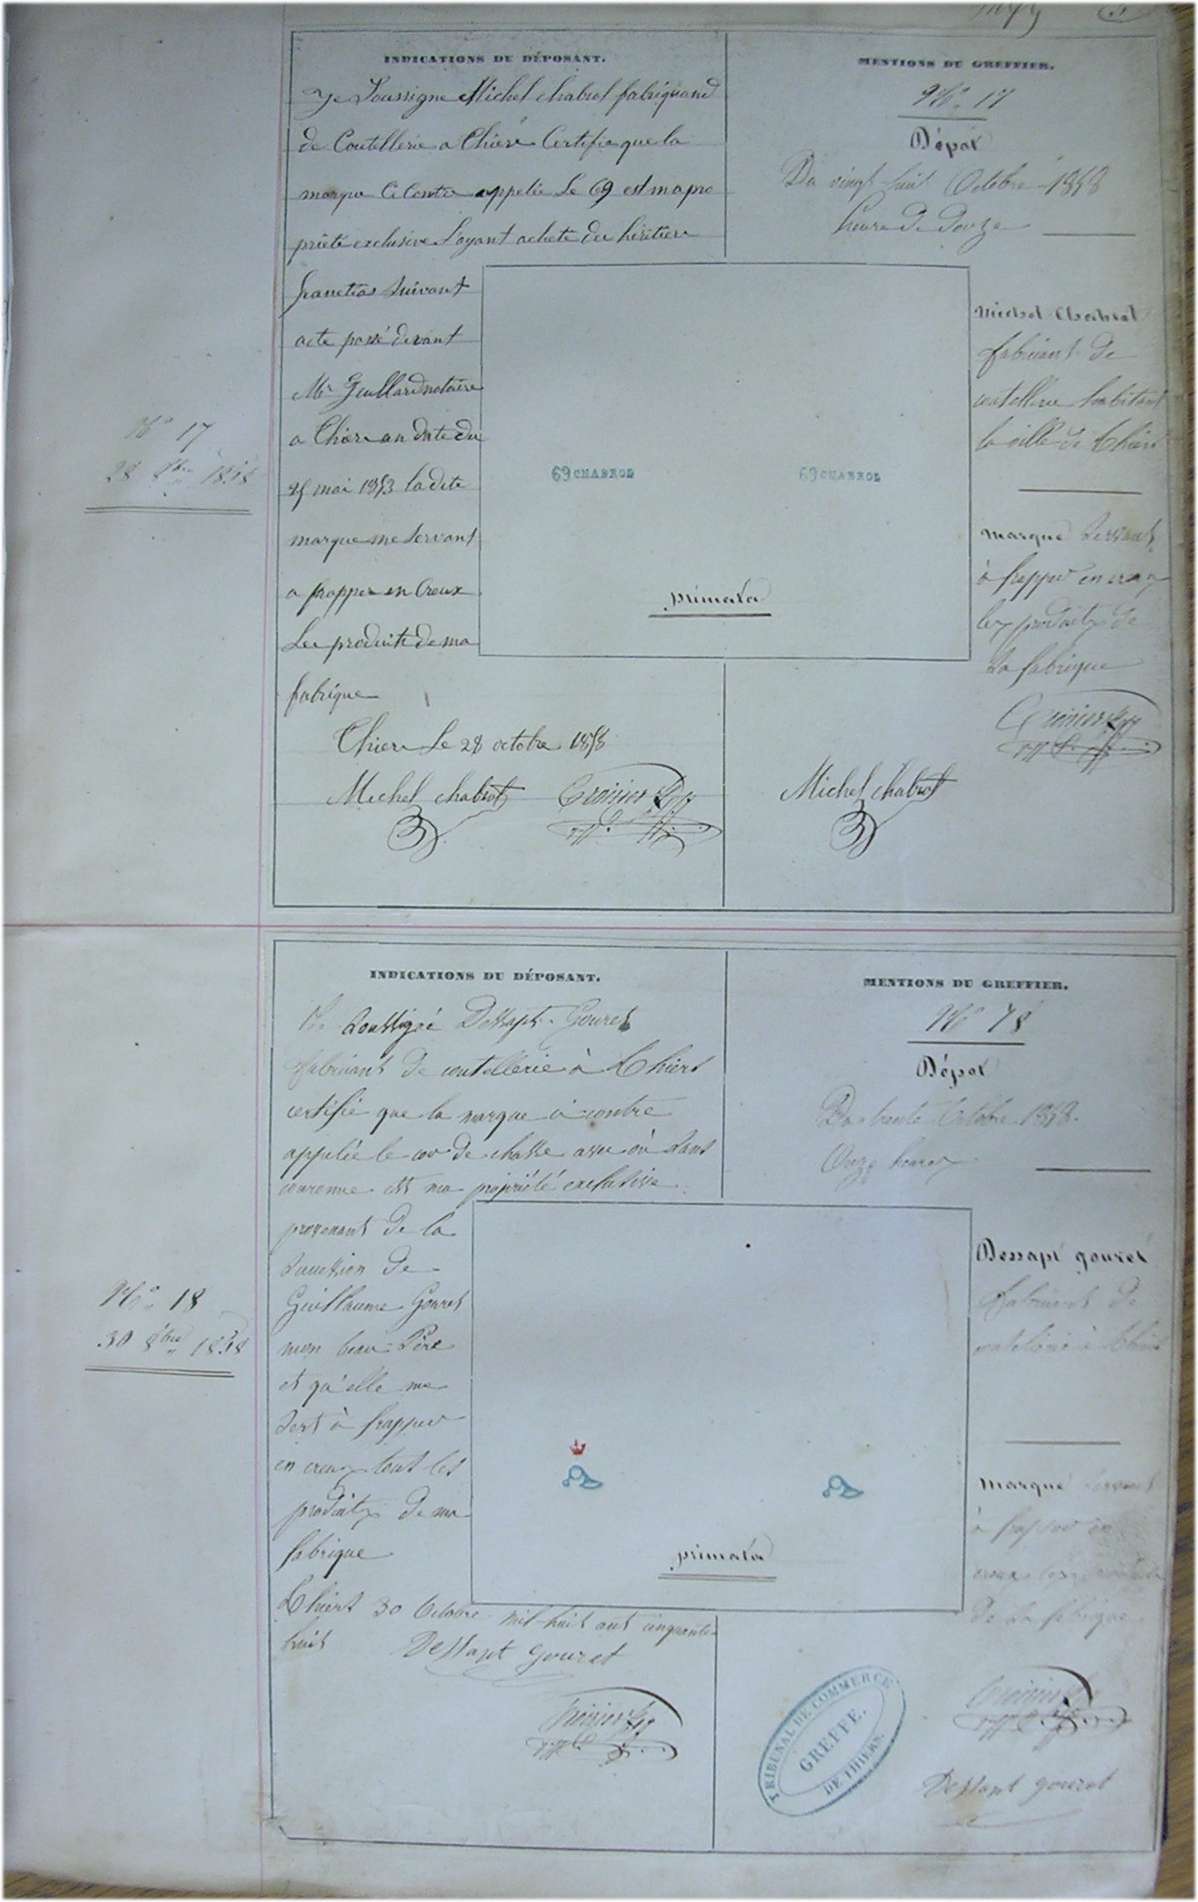 INDICATIONS DU DÉPOSANT.
Je Soussigne Michel chabrol fabriquand
de Coutellerie a Thiers Certifie que la
marque Ci Contre appelée Le 69 est ma pro
priété exclusive L'ayant acheté du héritiers
suivant
acte passé devant
Mr notaire
a Thiers an date du
mai 1853 la dite
marque me Servant
a frapper en Creux
Les produits de ma
fabrique
Thiers Le 28 octobre 1858
Michel chabrol
MENTIONS DU GREFFIER.
No. 17
Dépot
Du vingt huit Octobre 1858
heure de douze
Michel Chabrol
fabricant de
coutellerie habitant
la ville de Thiers
marque Servant
à frapper en creux
les produits de
Sa fabrique
Michel chabrol
69 CHABROL 69 CHABROL
primata
No 17
28 8bre 1858
INDICATIONS DU DÉPOSANT.
Soussigné Dessapt-Gouret
fabricant de coutellerie à Thiers
certifie que la marque ci contre
appelée le cor de chasse avec où sans
couronne est ma propriété exclusive
provenant de la
succession de
Guillaume Gouret
mon beau-Père
et qu'elle me
sert à frapper
en creux tout les
produits de ma
fabrique
Thiers 30 Octobre mil huit cent cinquante
huit Dessapt gouret
MENTIONS DU GREFFIER.
No 18
Dépot
Du trente Octobre 1858.
Onze heures
Dessapt gouret
fabricant de
coutellerie à Thiers
marque Servant
à frapper en
creux les produits
de Sa fabrique
Dessapt gouret
primata
No 18
30 8bre 1858
TRIBUNAL DE COMMERCE
GREFFE.
DE THIERS.